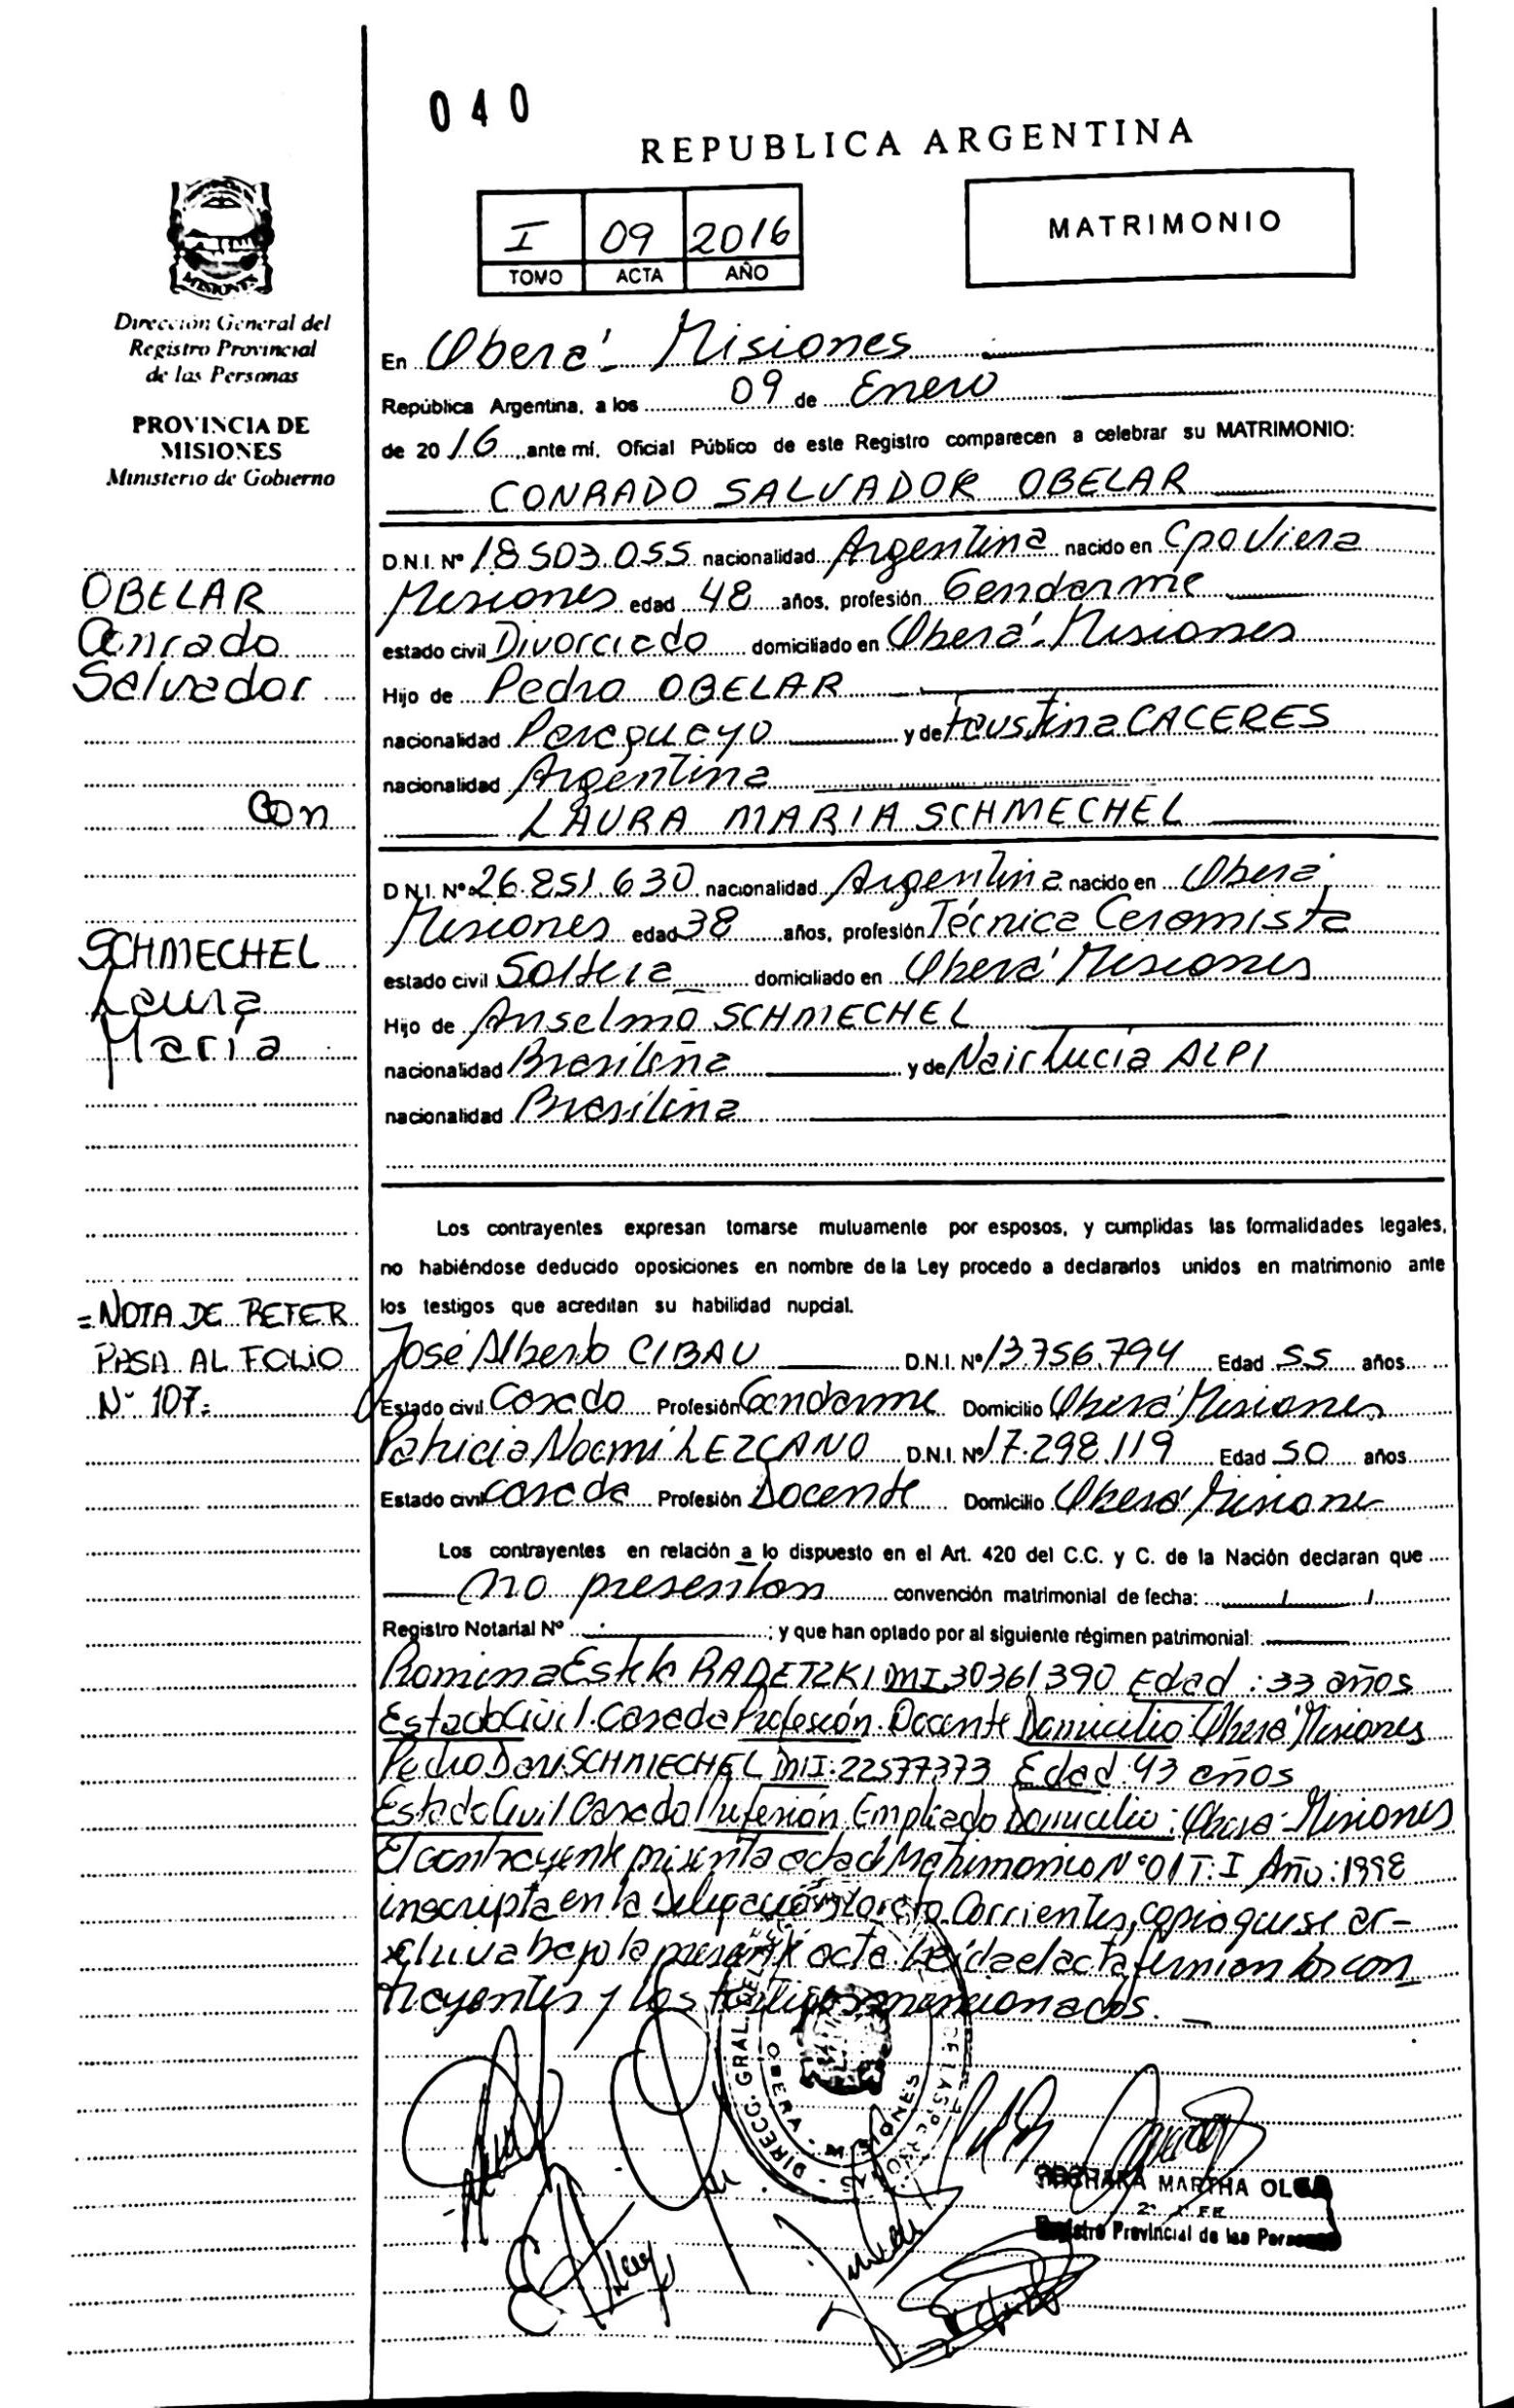 040
REPUBLICA ARGENTINA
I 09 2016
TOMO ACTA AÑO
MATRIMONIO
MISIONES
Dirección General del
Registro Provincial
de las Personas
PROVINCIA DE
MISIONES
Ministerio de Gobierno
OBELAR
Conrado
Salvador
Con
SCHMECHEL
Laura
María
=NOTA DE REFER
PASA AL FOLIO
N° 107=
En Oberá - Misiones
República Argentina, a los 09 de Enero
de 2016, ante mí, Oficial Público de este Registro comparecen a celebrar su MATRIMONIO:
CONRADO SALVADOR OBELAR
D.N.I. Nº 18503.055 nacionalidad Argentina nacido en Cpo Viera
Misiones edad 48 años, profesión Gendarme
estado civil Divorciado domiciliado en Oberá - Misiones
Hijo de Pedro OBELAR
nacionalidad Paraguayo y de Faustina CACERES
nacionalidad Argentina
LAURA MARIA SCHMECHEL
D.N.I. Nº 26.851.630 nacionalidad Argentina nacido en Oberá
Misiones edad 38 años, profesión Técnica Ceramista
estado civil Soltera domiciliado en Oberá Misiones
Hijo de Anselmo SCHMECHEL
nacionalidad Brasileña y de Nair Lucía ALPI
nacionalidad Brasilena
Los contrayentes expresan tomarse mutuamente por esposos, y cumplidas las formalidades legales,
no habiéndose deducido oposiciones en nombre de la Ley procedo a declararlos unidos en matrimonio ante
los testigos que acreditan su habilidad nupcial.
José Alberto CIBAU D.N.I. Nº 13.756.794 Edad 55 años
Estado civil Casado Profesión Gendarme Domicilio Oberá Misiones
Patricia Noemí LEZCANO D.N.I. Nº 17.298.119 Edad 50 años
Estado civil casada Profesión Docente Domicilio Oberá Misiones
Los contrayentes en relación a lo dispuesto en el Art. 420 del C.C. y C. de la Nación declaran que
no presentan convención matrimonial de fecha: / /
Registro Notarial Nº ; y que han optado por al siguiente régimen patrimonial:
Romina Estela RADETZKI MI 30361390 Edad: 33 años
Estado Civil Casada Profesión Docente Domicilio: Oberá Misiones
Pedro SCHMECHEL MI: 22577373 Edad: 43 años
Estado Civil Casado Profesión Empleado Domicilio: Oberá - Misiones
El contrayente presenta acta d Matrimonio N°01 T: I Año: 1998
inscripta en la Delegación Loreto Corrientes, copia que se ar-
chiva bajo la presente acta. Leída el acta firman los con
trayentes y los testigos mencionados.
DIRECC. GRAL. DEL DE LAS PERSONAS
OBERA - MISIONES
MARTHA OLGA
Registro Provincial de las Personas